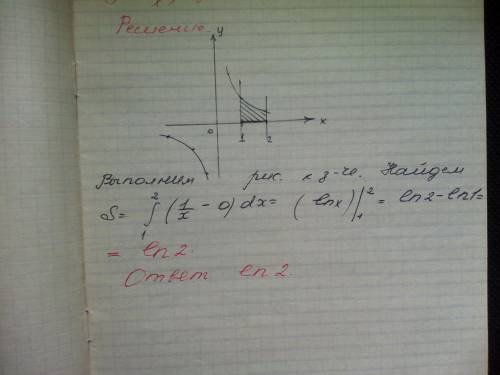 Решение
y
0 1 2 x
Выполним рис. к з-че. Найдем
S= ∫₁² (1/x - 0) dx = (ln x)|₁² = ln2 - ln1 =
= ln 2.
Ответ ln 2